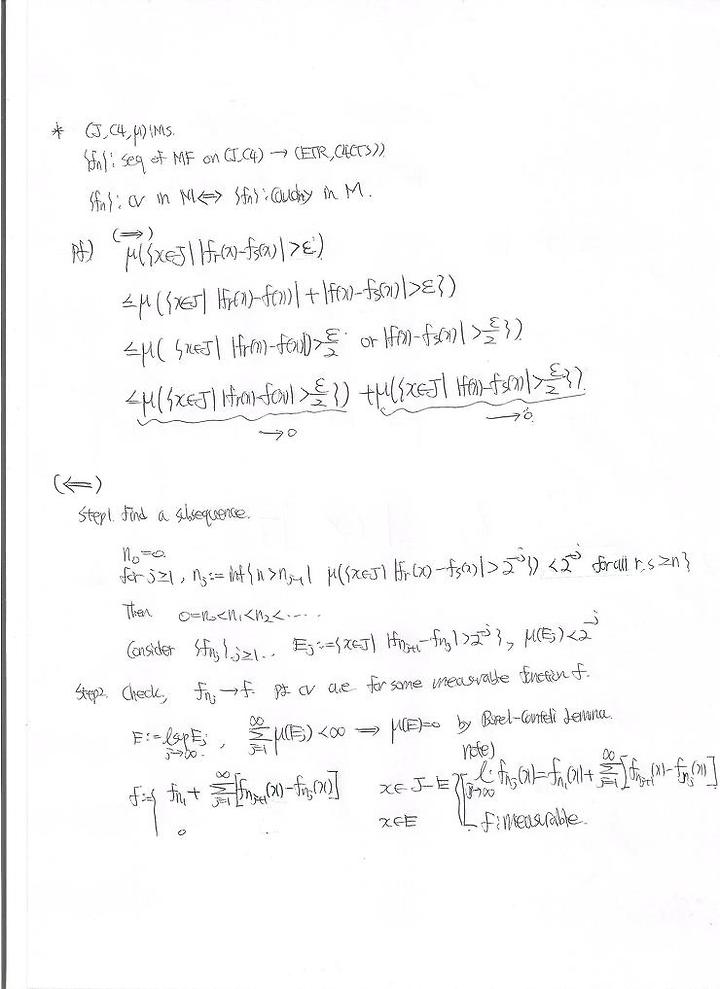 * (J, C4, μ): MS.
{fn}: seq of MF on (J, C4) → (ETR, C4(TS))
{fn}: cv in M ⟺ {fn}: Cauchy in M.
pf) (⟹)
μ({x∈J | |fr(x)-fs(x)|>ε})
≤μ({x∈J | |fr(x)-f(x)|+|f(x)-fs(x)|>ε})
≤μ({x∈J | |fr(x)-f(x)|>ε/2 or |f(x)-fs(x)|>ε/2})
≤μ({x∈J | |fr(x)-f(x)|>ε/2}) + μ({x∈J | |f(x)-fs(x)|>ε/2})
→0 →0
(⟸)
Step1. Find a subsequence.
n₀=0.
for j≥1, nj := inf{n>nj-1 | μ({x∈J | |fr(x)-fs(x)|>2^-j}) < 2^-j for all r, s≥n}
Then 0=n₀<n₁<n₂<....
Consider {fnj}j≥1.. Ej:={x∈J | |fnj+1-fnj|>2^-j}, μ(Ej)<2^-j
Step2. Check, fnj→f. pt cv a.e for some measurable function f.
E:=lsp Ej j→∞, ∑j=1^∞ μ(Ej)<∞ ⟹ μ(E)=0 by Borel-Canteli Lemma.
note)
f:={ fn₁ + ∑j=1^∞ [fnj+1(x)-fnj(x)] x∈J-E { l. j→∞ fnj(x)=fn₁(x)+∑j=1^∞ [fnj+1(x)-fnj(x)]
0 x∈E f: measurable.